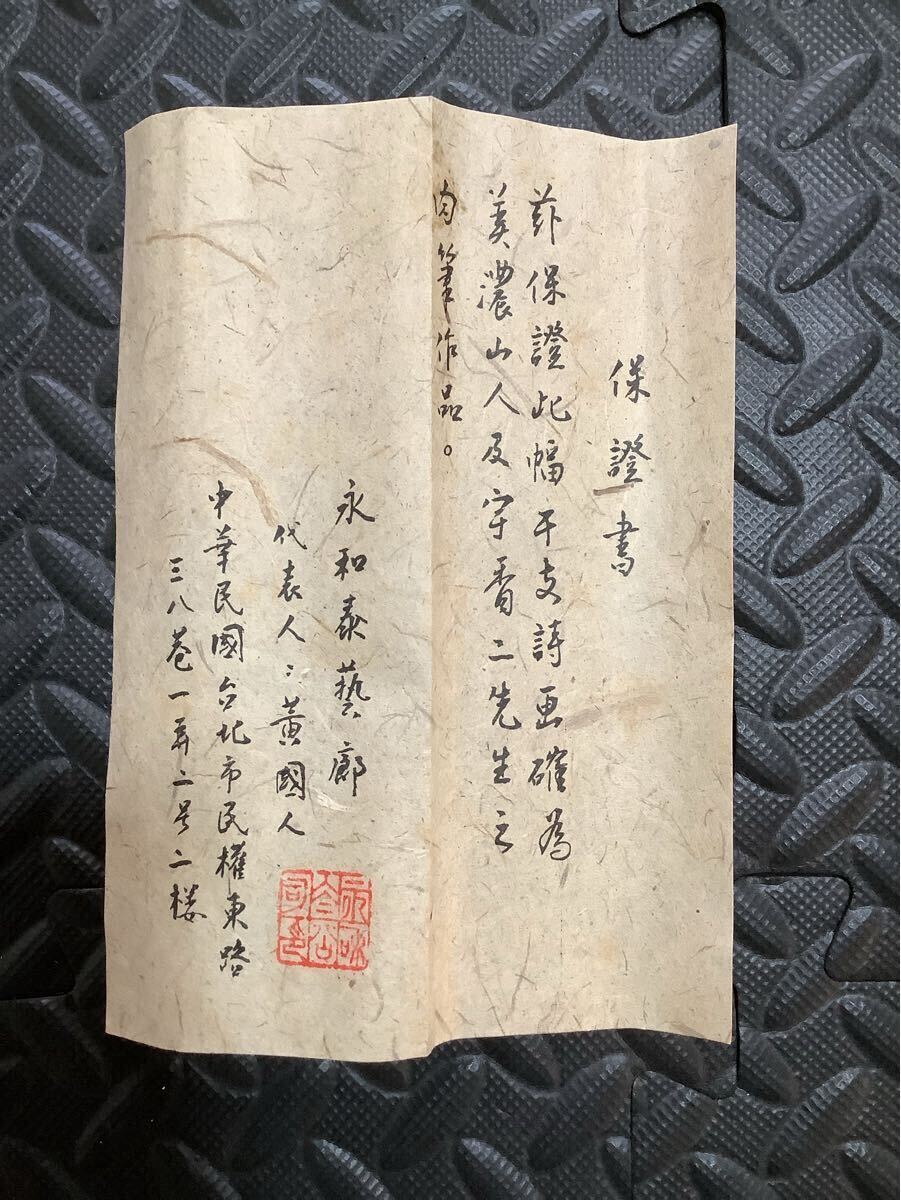 保證書
茲保證此幅干支詩画確為
美濃山人及守香二先生之
肉筆作品。
永和泰藝廊
代表人：黃國人
中華民國台北市民權東路
三八巷一弄二号二楼